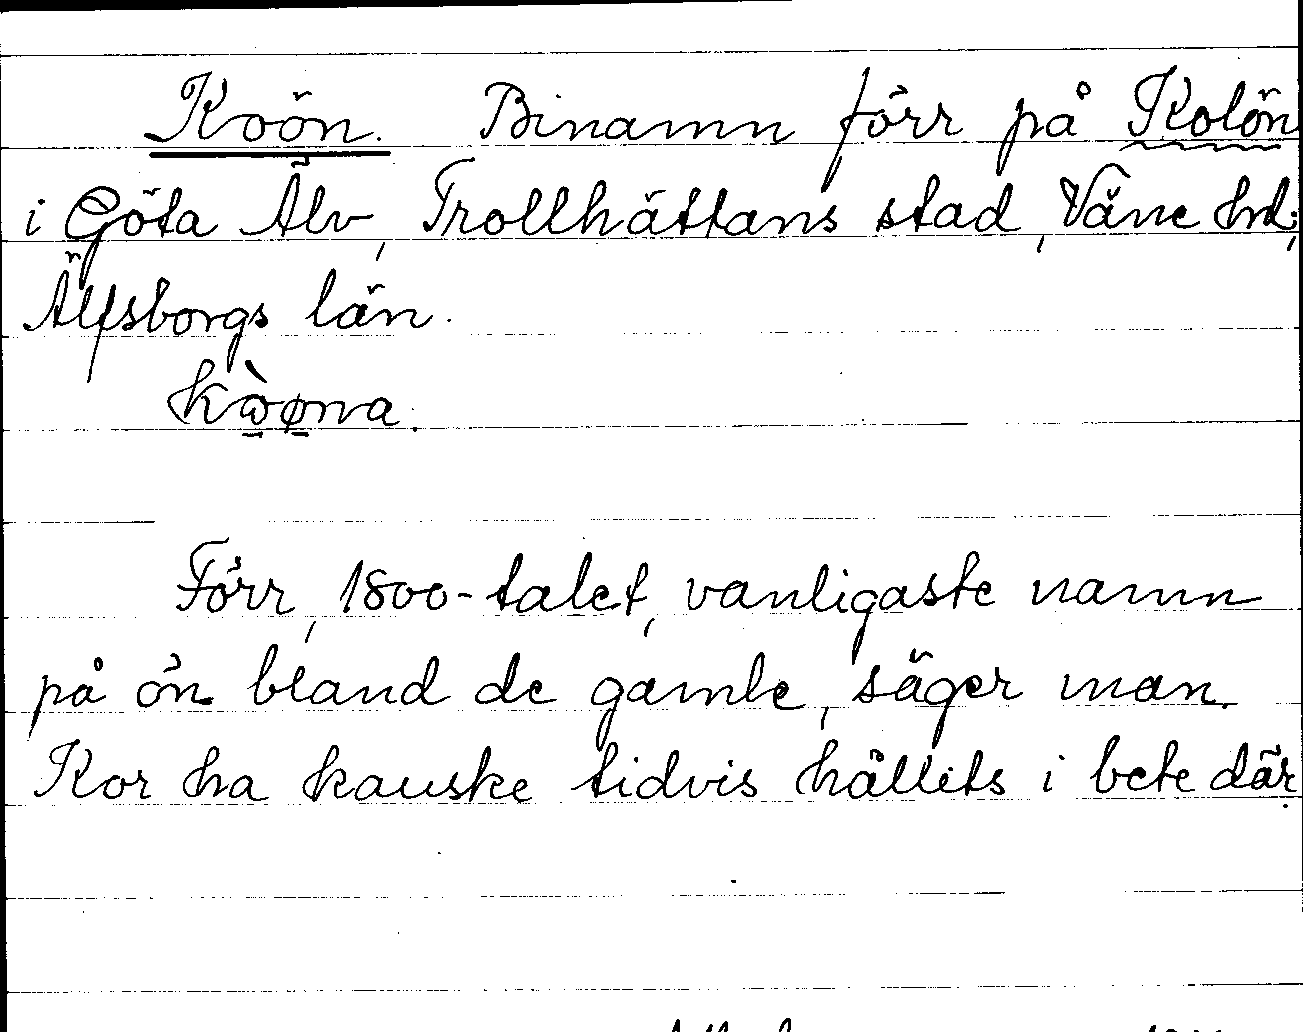 Koön. Binamn förr på Kolön
i Göta Älv, Trollhättans stad, Väne hd;
Älfsborgs län.
Förr, 1800-talet, vanligaste namn
på ön bland de gamle, säger man.
Kor ha kanske tidvis hållits i bete där.